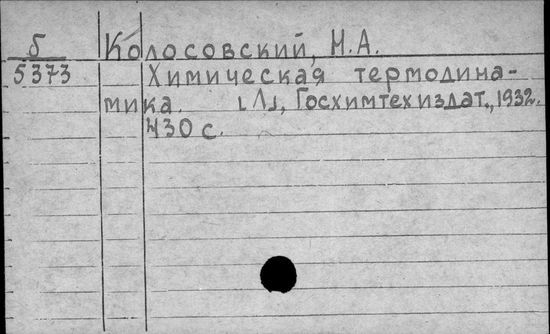 Б Колосовский, Н.А.
5373 Химическая термодина-
мика. [Л], Госхимтехиздат, 1932.
430 с.